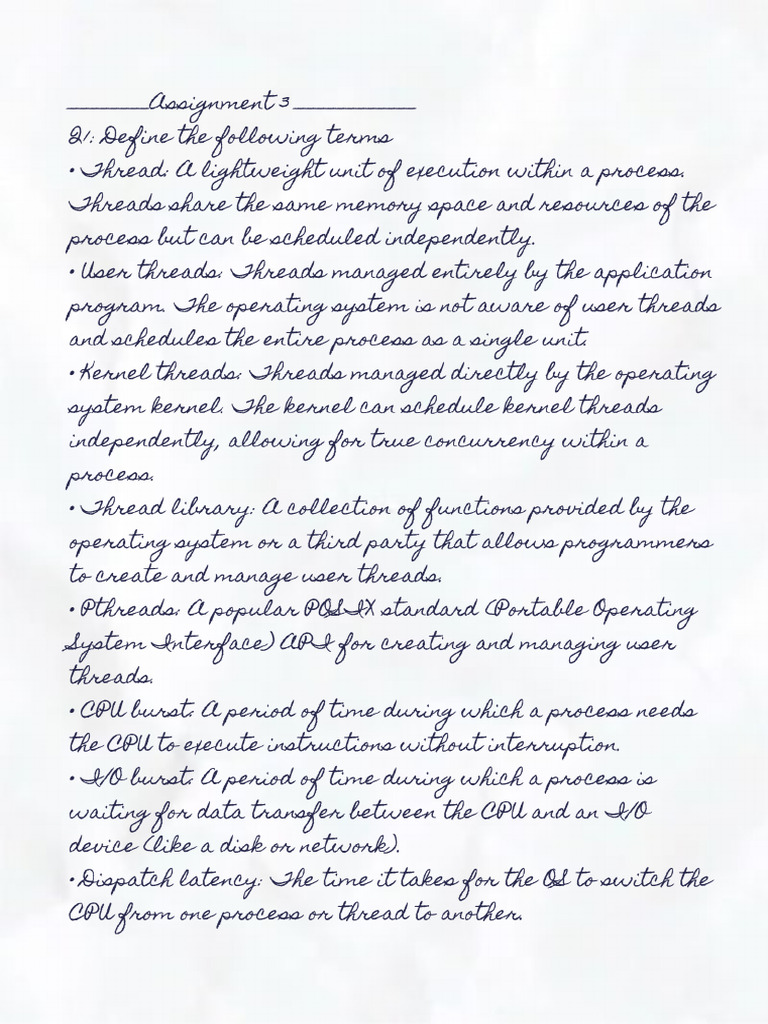 ________Assignment 3____________
Q1: Define the following terms
• Thread: A lightweight unit of execution within a process.
Threads share the same memory space and resources of the
process but can be scheduled independently.
• User threads: Threads managed entirely by the application
program. The operating system is not aware of user threads
and schedules the entire process as a single unit.
• Kernel threads: Threads managed directly by the operating
system kernel. The kernel can schedule kernel threads
independently, allowing for true concurrency within a
process.
• Thread library: A collection of functions provided by the
operating system or a third party that allows programmers
to create and manage user threads.
• Pthreads: A popular POSIX standard (Portable Operating
System Interface) API for creating and managing user
threads.
• CPU burst: A period of time during which a process needs
the CPU to execute instructions without interruption.
• I/O burst: A period of time during which a process is
waiting for data transfer between the CPU and an I/O
device (like a disk or network).
• Dispatch latency: The time it takes for the OS to switch the
CPU from one process or thread to another.